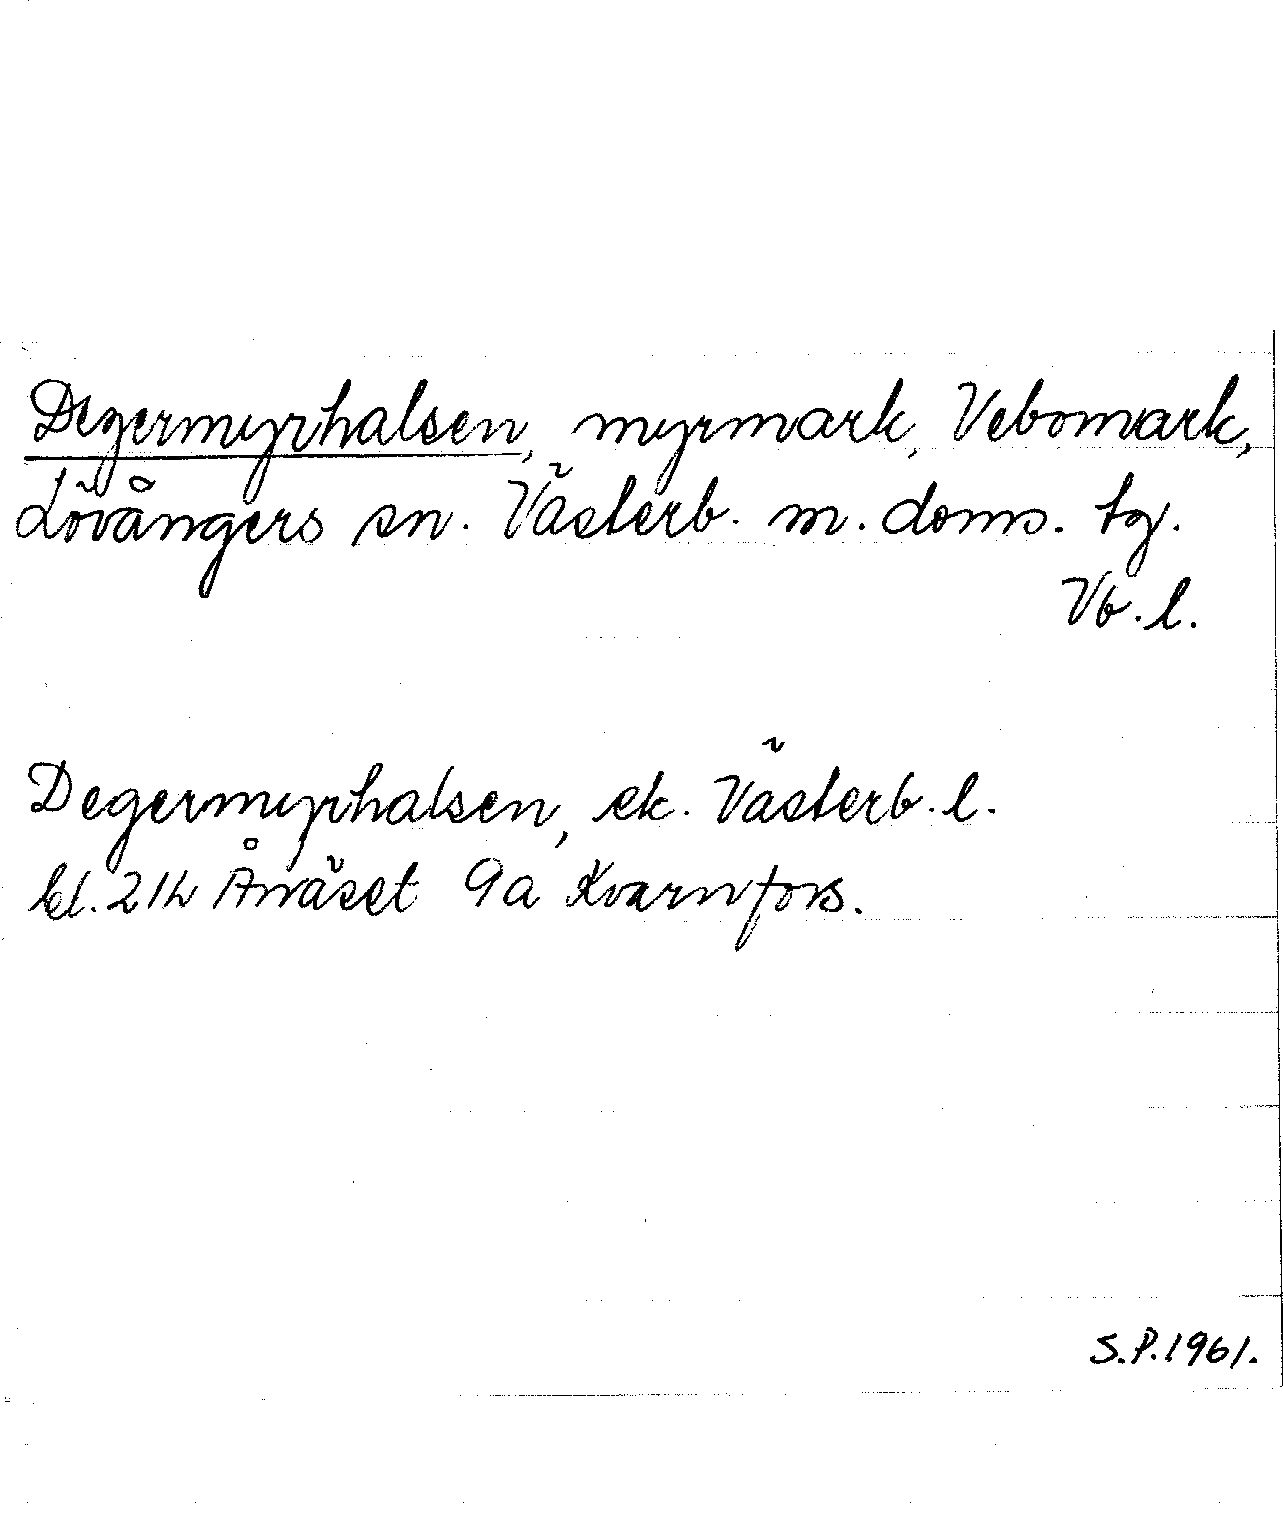 Degermyrhalsen, myrmark, Vebomark,
Lövångers sn. Västerb. m. doms. tg.
Vb. l.
Degermyrhalsen, ek. Västerb. l.
bl. 21L Ånäset 9a Kvarnfors.
S.P. 1961.